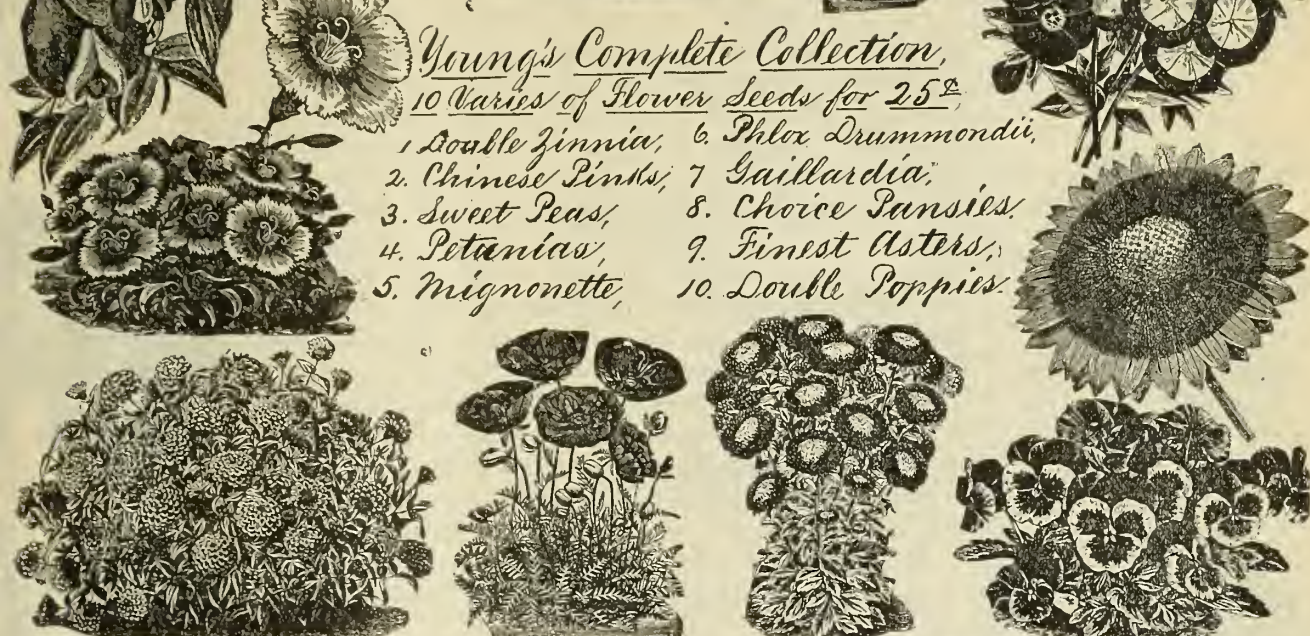 Young's Complete Collection,
10 Varies of Flower Seeds for 25¢,
1 Double Zinnia,
2. Chinese Pinks,
3. Sweet Peas,
4. Petunias,
5. Mignonette,
6. Phlox Drummondii,
7 Gaillardia,
8. Choice Pansies.
9. Finest Asters,
10. Double Poppies.